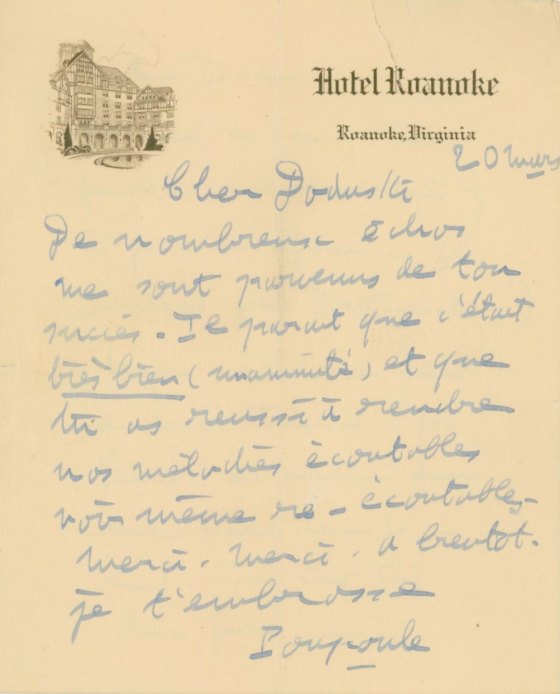 Hotel Roanoke
Roanoke, Virginia
20 mars
Cher Doduski
De nombreux échos
me sont parvenus de ton
succès. Il parait que c'était
très bien (unanimité) et que
tu as reussi à rendre
nos mélodies écoutables
voir même re-écoutables.
Merci. Merci. a bientot.
je t'embrasse
Poupoule